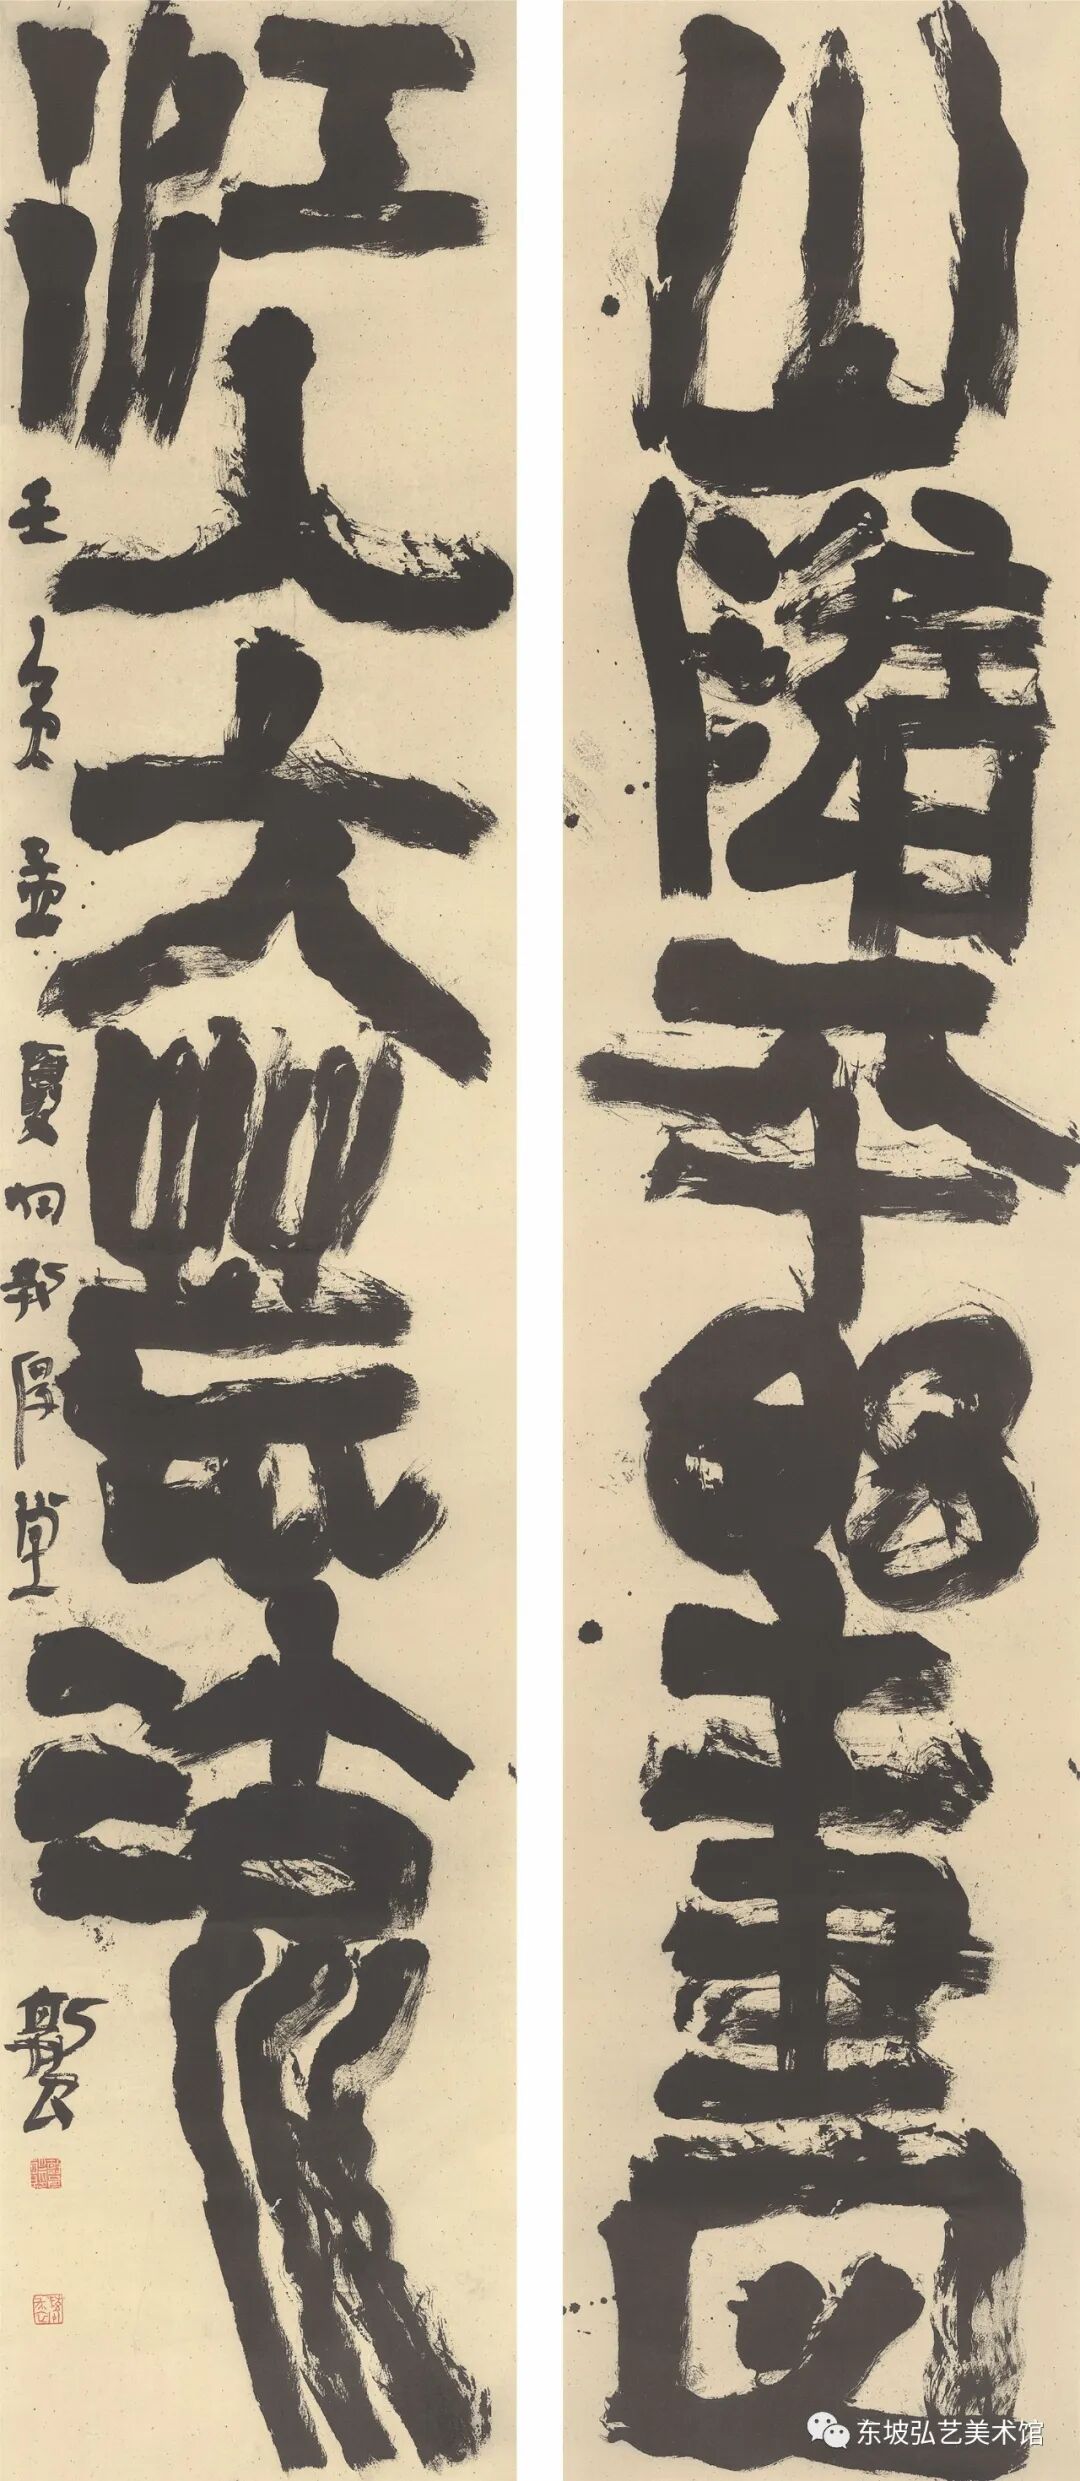 山隨平野盡
江入大荒流
壬寅孟夏 堂
东坡弘艺美术馆